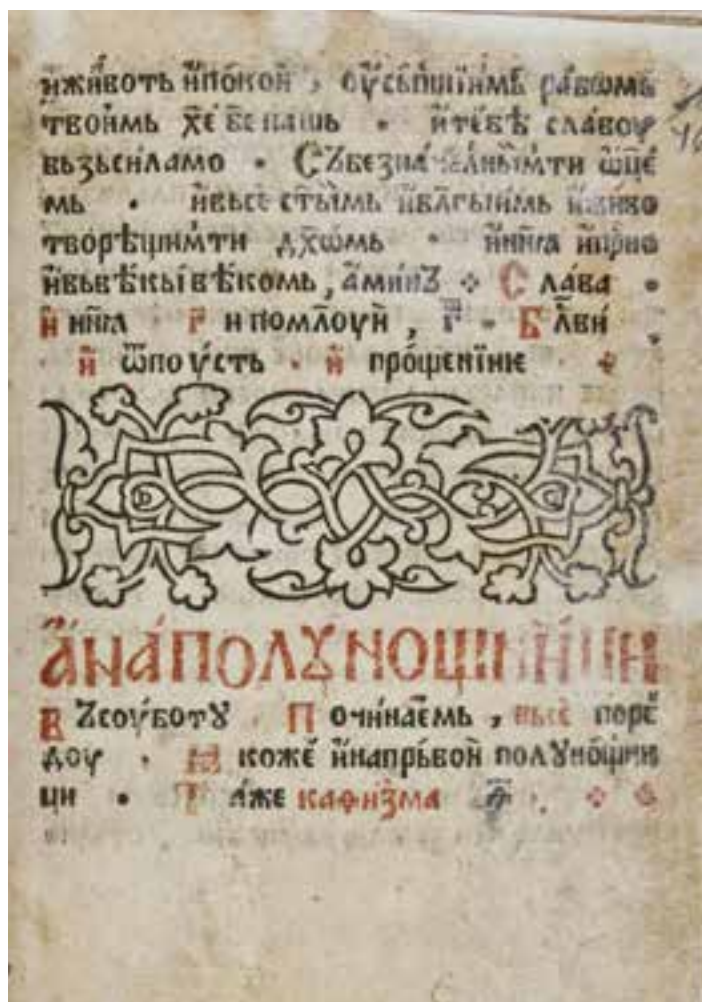 и҆живо́ть и҆поко́и , оу҆сь́пшїи́мь рабѡмь
твои́мь х҃е б҃е нашь · и҆те́бѣ сла́воу
вьзьси́ламо · Събезна́ча́лныи́мти ѡ҃це́
мь · и҆вьсе ст҃ы́имь и҆бл҃гы́имь и҆живо
творѣ́щимти дх҃ѡмь · и҆нн҃ꙗ и҆при́но
и҆вьвѣ́кы́ вѣ́комь , а҆ми́нъ Сла́ва ·
И҆ нн҃ꙗ · Г҃и помл҃оуи , г҃ · Бл҃ви́
и҆ ѿпоу́сть · и҆ проще́нїиѥ
А҆на́полꙋнощни́ци
Въсоу́ботꙋ · Почи́наемь , вьсѐ поре́
доу · Ꙗкоже́ и҆напрь́вои полꙋно́щни
ци · Та́же кафи́зма